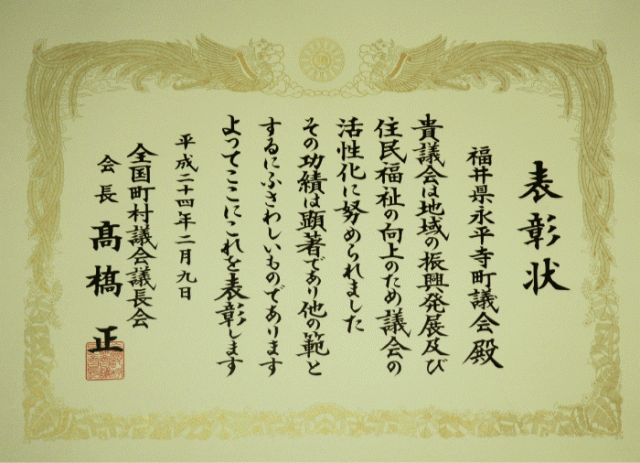 表彰状
福井県永平寺町議会殿
貴議会は地域の振興発展及び
住民福祉の向上のため議会の
活性化に努められました
その功績は顕著であり他の範と
するにふさわしいものであります
よってここにこれを表彰します
平成二十四年二月九日
全国町村議会議長会
会長 髙橋正